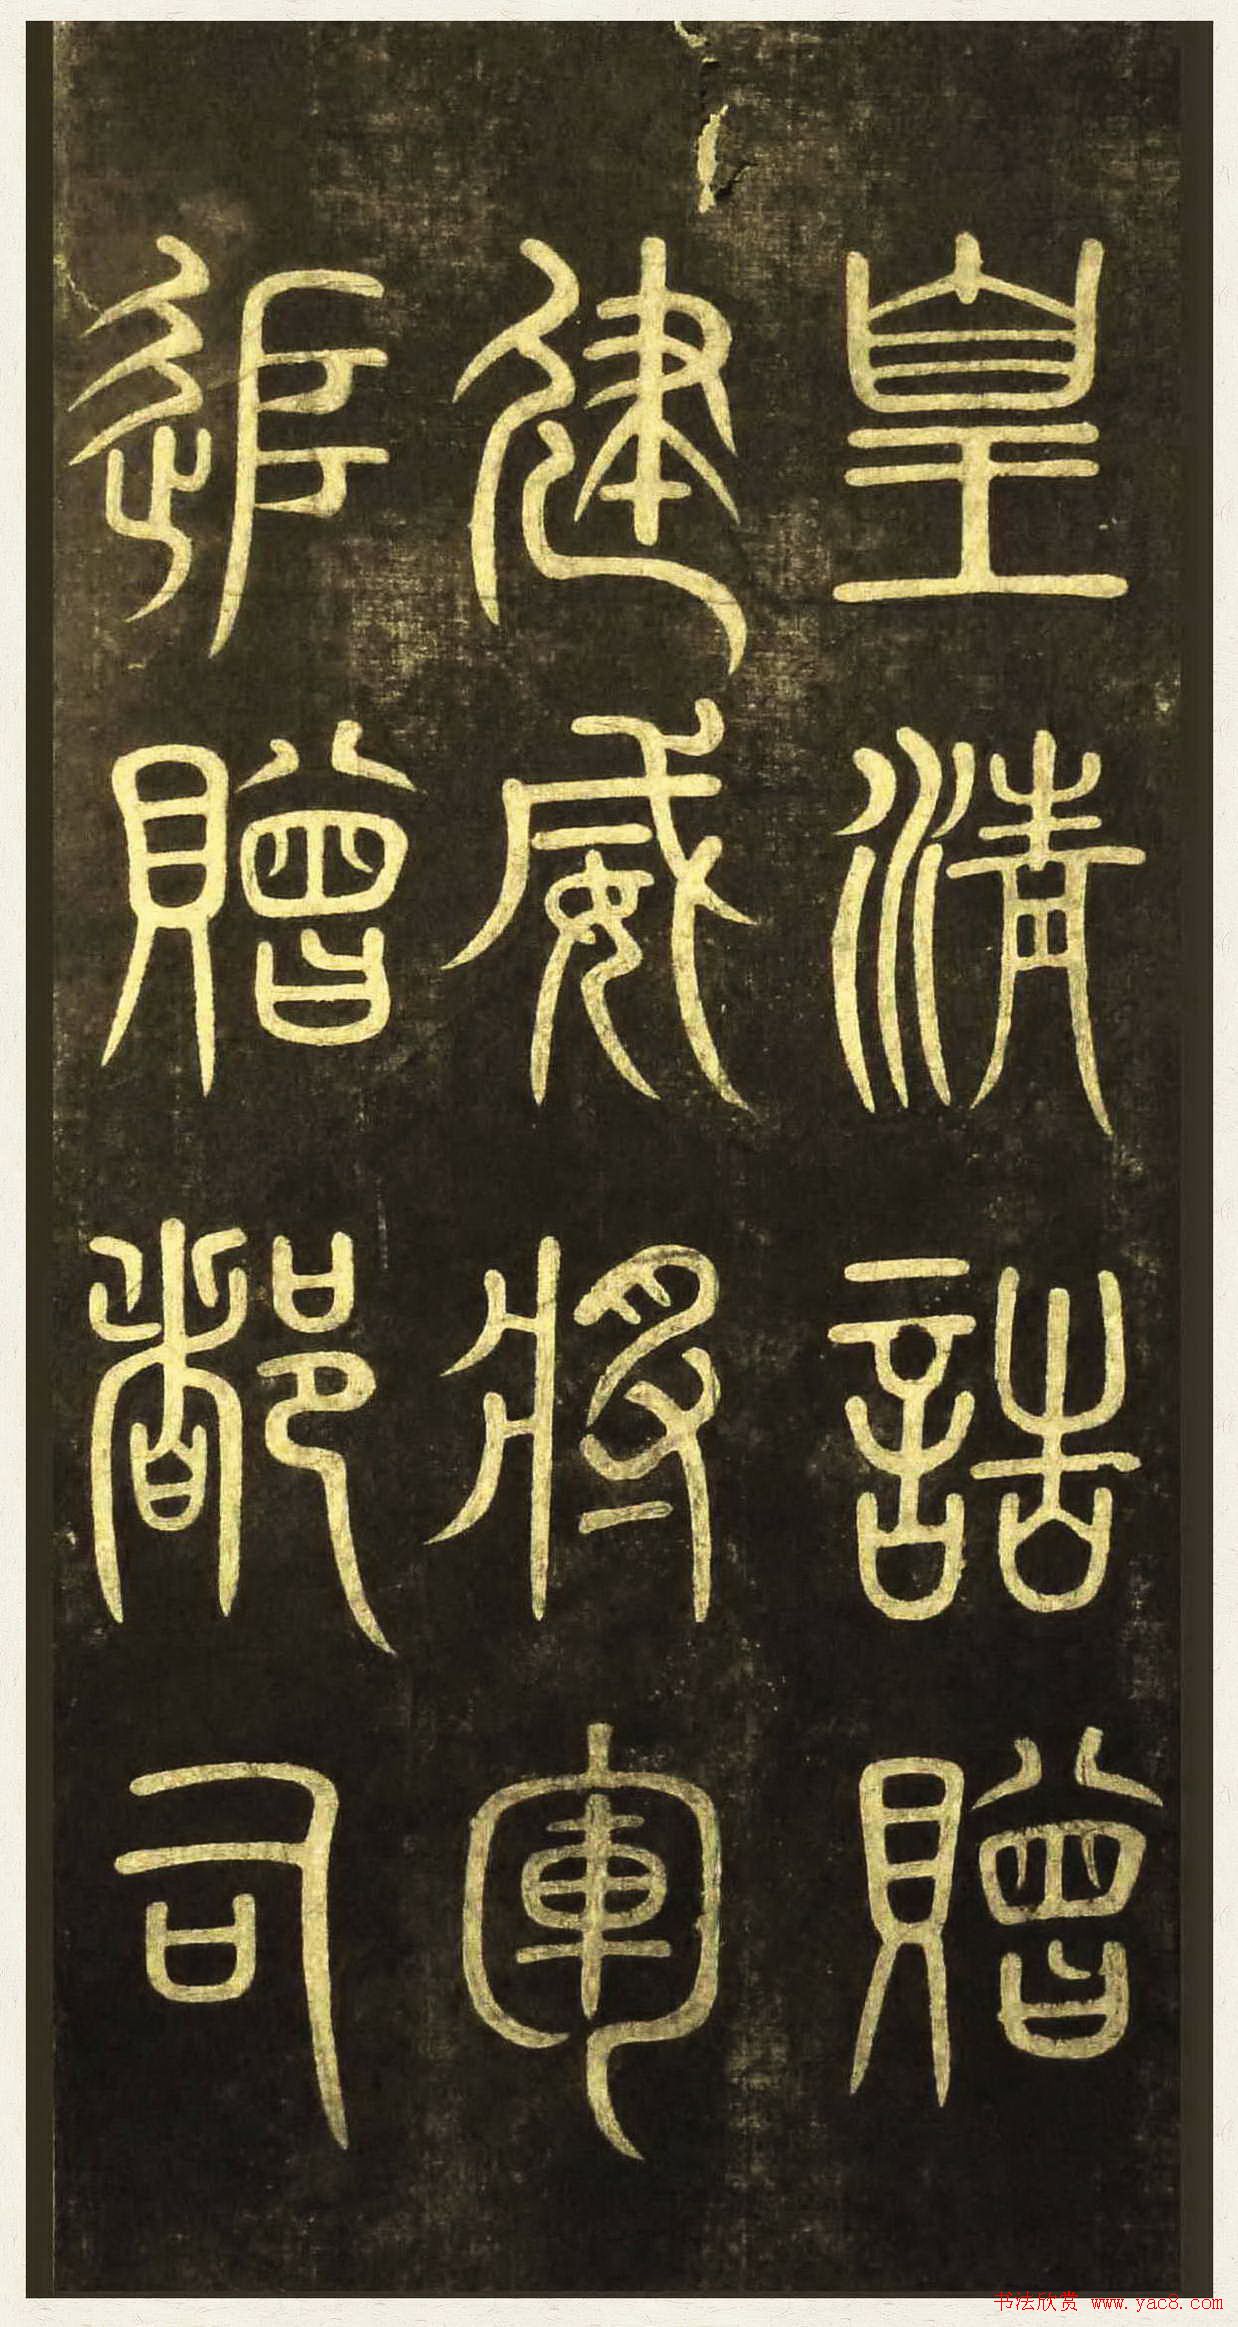 皇清誥贈
建威將軍
追贈都司
书法欣赏 www.yac8.com